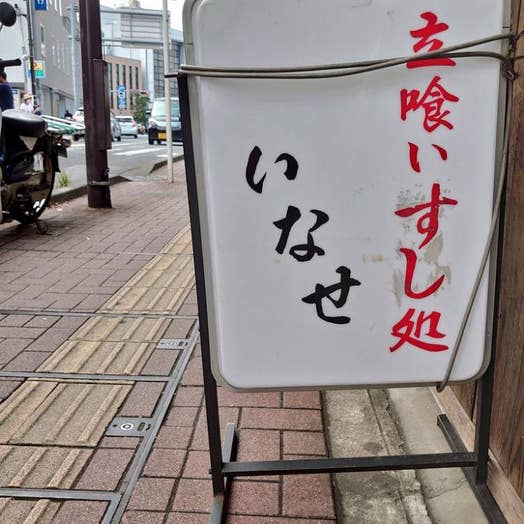 立喰いすし処
いなせ